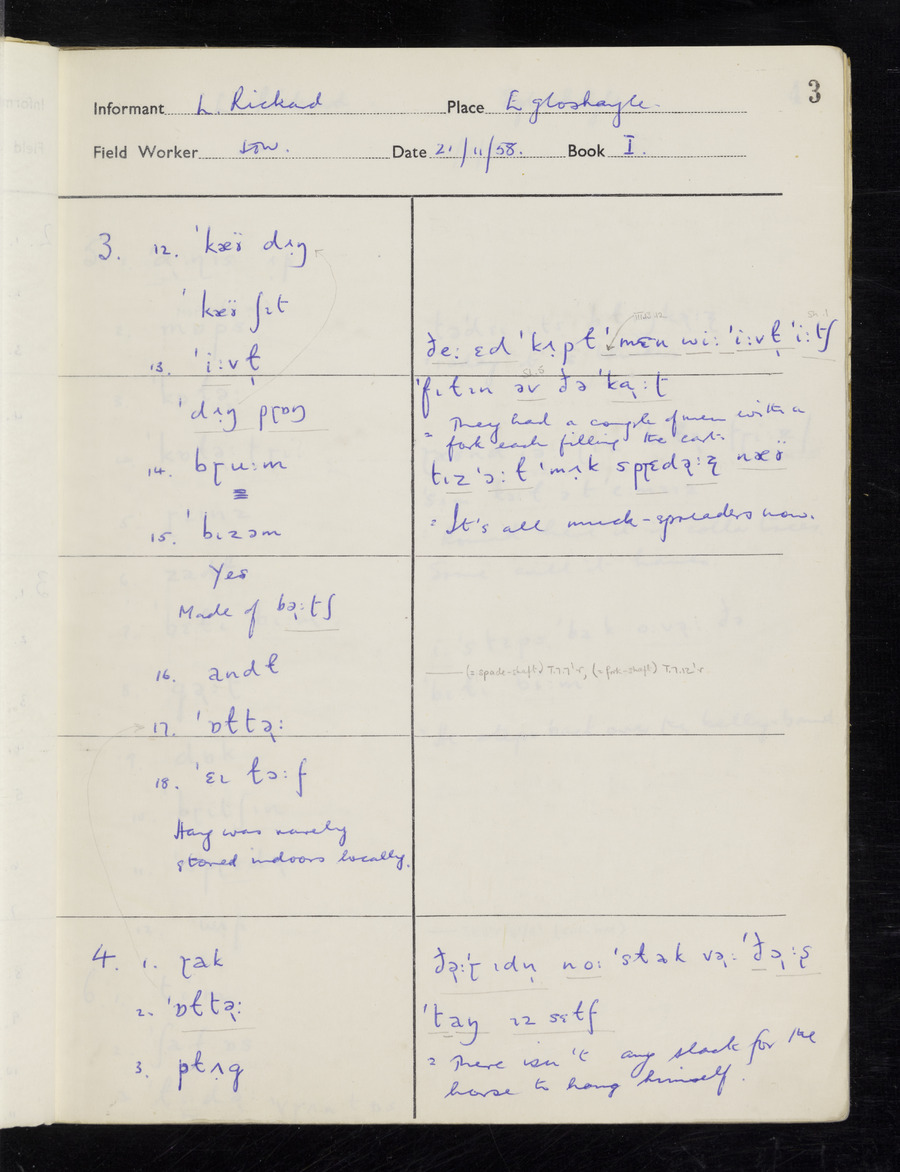 3
Informant L. Rickard Place Egloshayle.
Field Worker Date 21/11/58. Book I.
3. 12. ˈkæʊ̈ dʌŋ
ˈkæʊ̈ ʃɪt
13. ˈiːvɫ̩
ˈdʌŋ pɽɒŋ
14. bɽuːm
15. ˈbɪzəm
Yes
Made of bəːtʃ
16. andɫ
17. ˈɒɫtəː
18. ˈɛɪ ɫɔːf
Hay was rarely
stored indoors locally.
4. 1. ɽak
2. ˈɒɫtəː
3. pɫʌg
ðeː ɛd ˈkʌpɫ ˈmɛn wiː ˈiːvɫ̩ ˈiːtʃ
ˈfɪɫɪn əv ðə ˈkaːt
= They had a couple of men with a
fork each filling the cart.
tɪz ˈɔːɫ ˈmʌk spɽɛdəːz næʊ̈
= It's all muck-spreaders now.
(= spade-shaft) I.7.7 r, (= fork-shaft) I.7.12 r.
ðəːɽ ɪdn̩ noː ˈstæk vəː ˈðəːʂ
ˈtaŋ ɪz sɛɫf
= There isn't any slack for the
horse to hang himself.